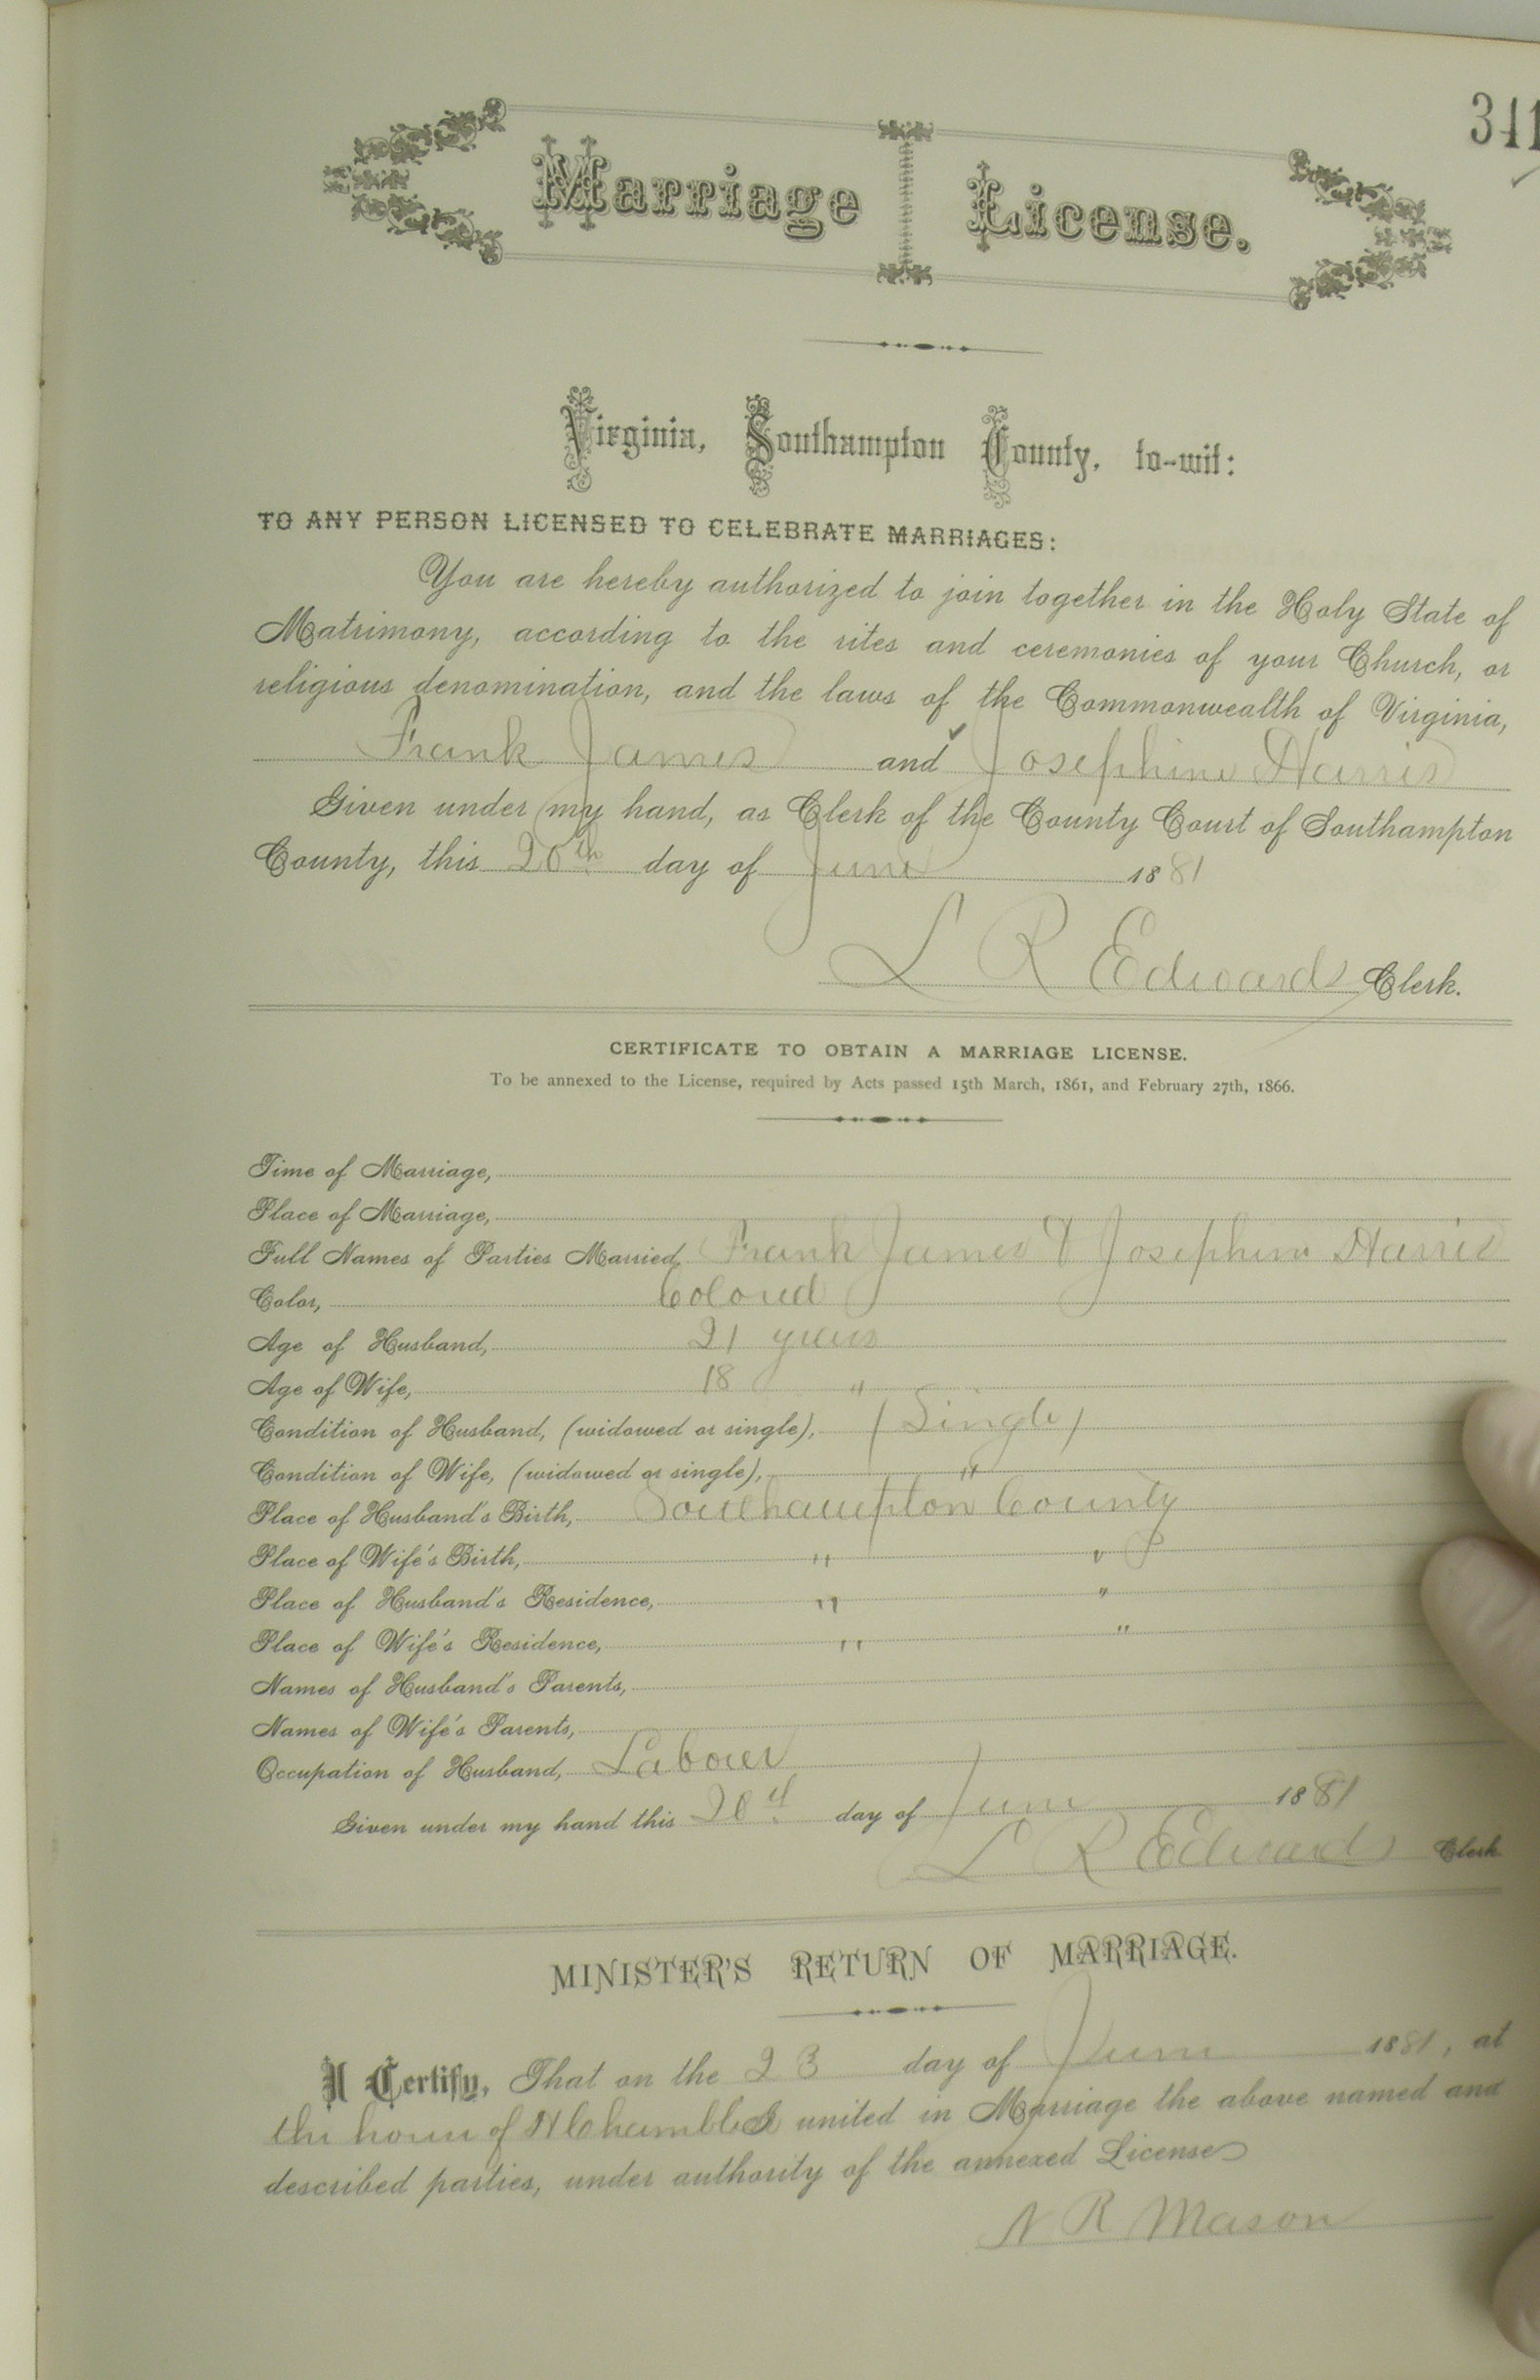 341
Marriage License.
Virginia, Southampton County, to-wit:
TO ANY PERSON LICENSED TO CELEBRATE MARRIAGES:
You are hereby authorized to join together in the Holy State of
Matrimony, according to the rites and ceremonies of your Church, or
religious denomination, and the laws of the Commonwealth of Virginia,
Frank James and Josephine Harris
Given under my hand, as Clerk of the County Court of Southampton
County, this 20th day of June 1881
L R Edwards Clerk.
CERTIFICATE TO OBTAIN A MARRIAGE LICENSE.
To be annexed to the License, required by Acts passed 15th March, 1861, and February 27th, 1866.
Time of Marriage,
Place of Marriage,
Full Names of Parties Married, Frank James & Josephine Harris
Color, Colored
Age of Husband, 21 years
Age of Wife, 18 "
Condition of Husband, (widowed or single), (Single)
Condition of Wife, (widowed or single), "
Place of Husband's Birth, Southampton County
Place of Wife's Birth, " "
Place of Husband's Residence, " "
Place of Wife's Residence, " "
Names of Husband's Parents,
Names of Wife's Parents,
Occupation of Husband, Labour
Given under my hand this 20th day of June 1881
L R Edwards Clerk
MINISTER'S RETURN OF MARRIAGE.
I Certify, That on the 23 day of June 1881, at
the house of united in Marriage the above named and
described parties, under authority of the annexed License
N R Mason